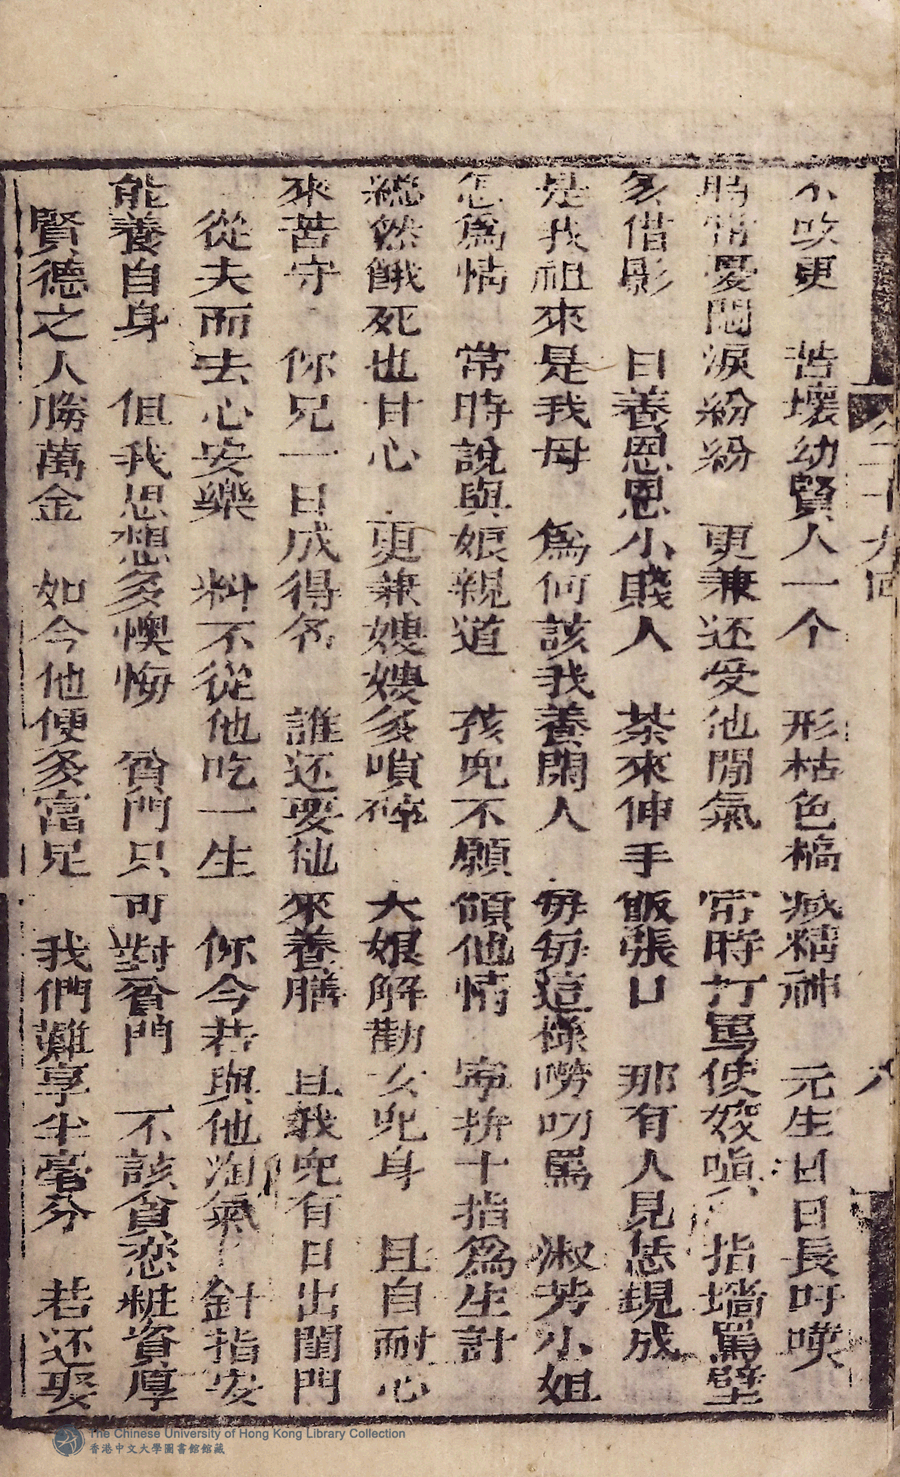 不吹更　苦壞幼賢人一个　形枯色槁减精神　元生日日長吁嘆
時常憂悶淚紛紛　更兼还受他閒氣　常時打罵使姣嗔　指墻罵壁
多借影　日養恩恩小賤人　茶來伸手飯張口　那有人見恁現成
是我祖來是我母　爲何該我養閑人　毎毎這様嘮叨罵　淑芳小姐
怎爲情　常時說與娘親道　孩兒不願領他情　寕拚十指爲生計
総然餓死也甘心　更兼嫂嫂多嗔碎　大娘解勸女兒身　且自耐心
來苦守　你兄一日成得名　誰还要他來養膳　且我兒有日出閨門
從夫而去心安樂　料不從他吃一生　你今若與他淘氣　針指安
能養自身　但我思想多懊悔　貧門只可對貧門　不該貪恋粧資厚
賢德之人勝萬金　如今他便多富足　我們難享半毫分　若还娶
二十九回
八
The Chinese University of Hong Kong Library Collection
香港中文大學圖書館館藏